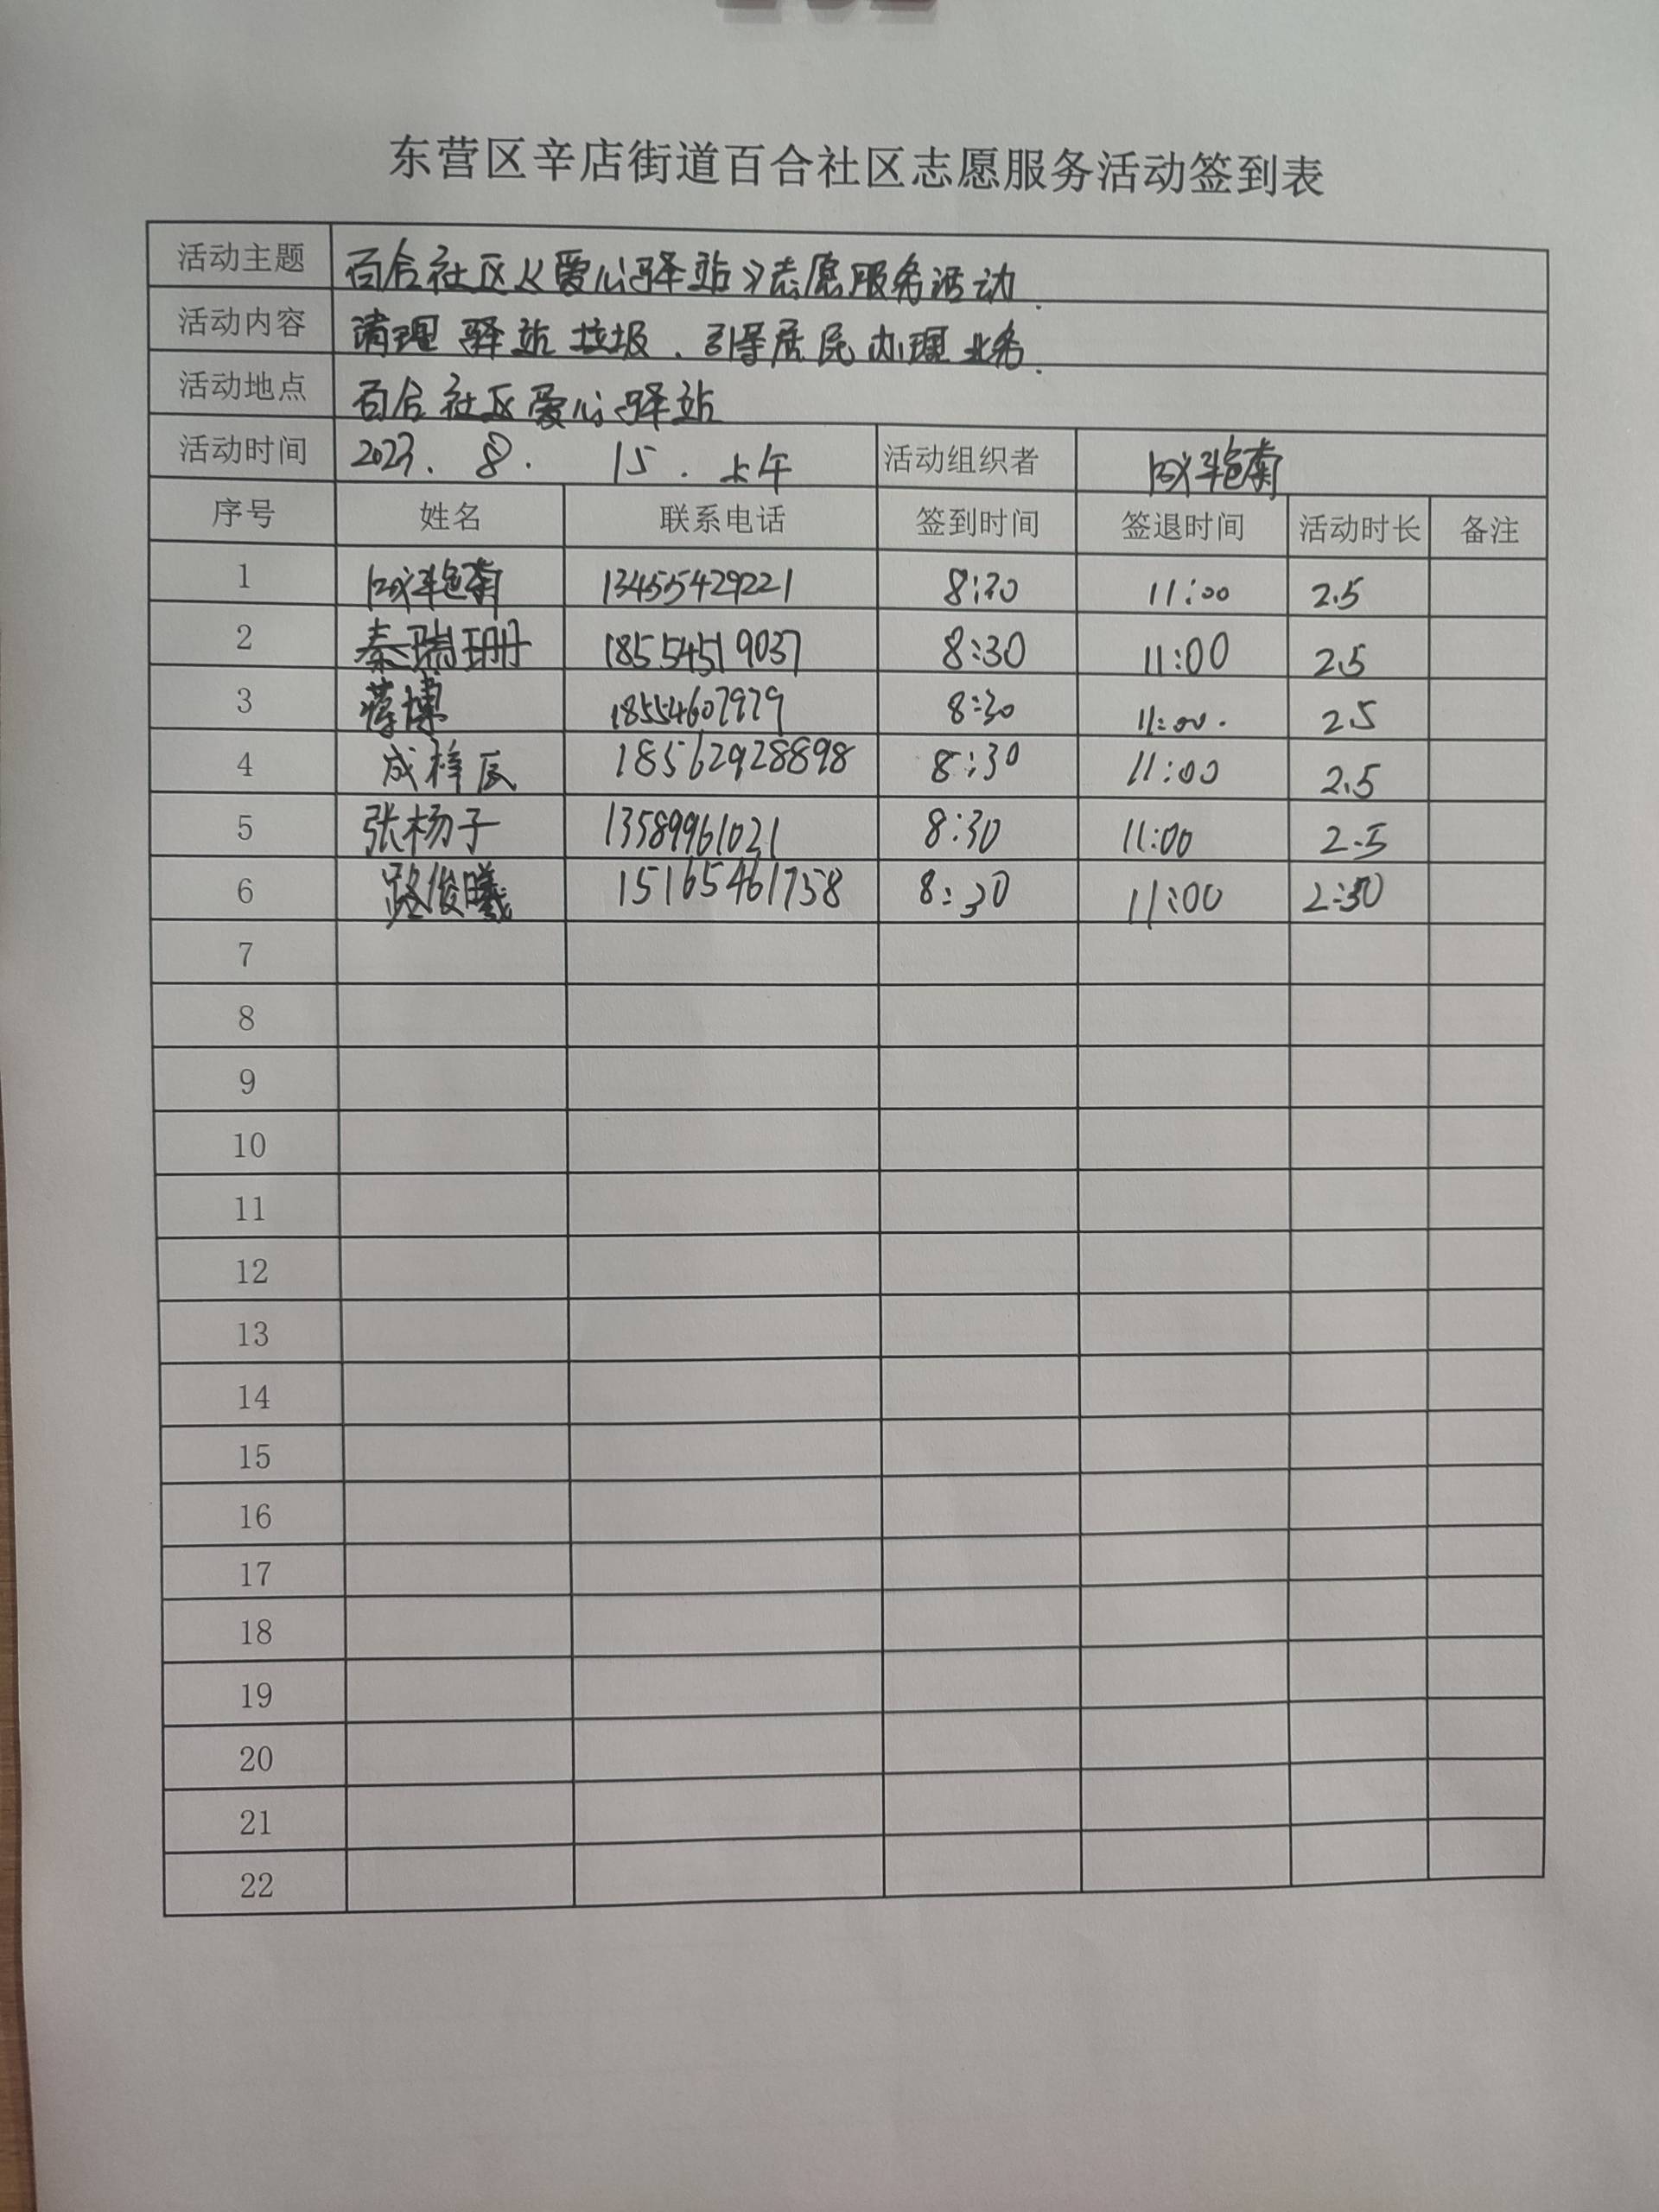 东营区辛店街道百合社区志愿服务活动签到表
活动主题 百合社区《爱心驿站》志愿服务活动.
活动内容 清理驿站垃圾、引导居民办理业务.
活动地点 百合社区爱心驿站
活动时间 2023. 8. 15. 上午 活动组织者
序号 姓名 联系电话 签到时间 签退时间 活动时长 备注
1 13455429221 8:30 11:00 2.5
2 秦瑞珊 18554519037 8:30 11:00 2.5
3 蒋博 18554607979 8:30 11:00. 2.5
4 成梓辰 18562928898 8:30 11:00 2.5
5 张杨子 13589961021 8:30 11:00 2.5
6 路俊曦 15165461758 8:30 11:00 2:30
7
8
9
10
11
12
13
14
15
16
17
18
19
20
21
22